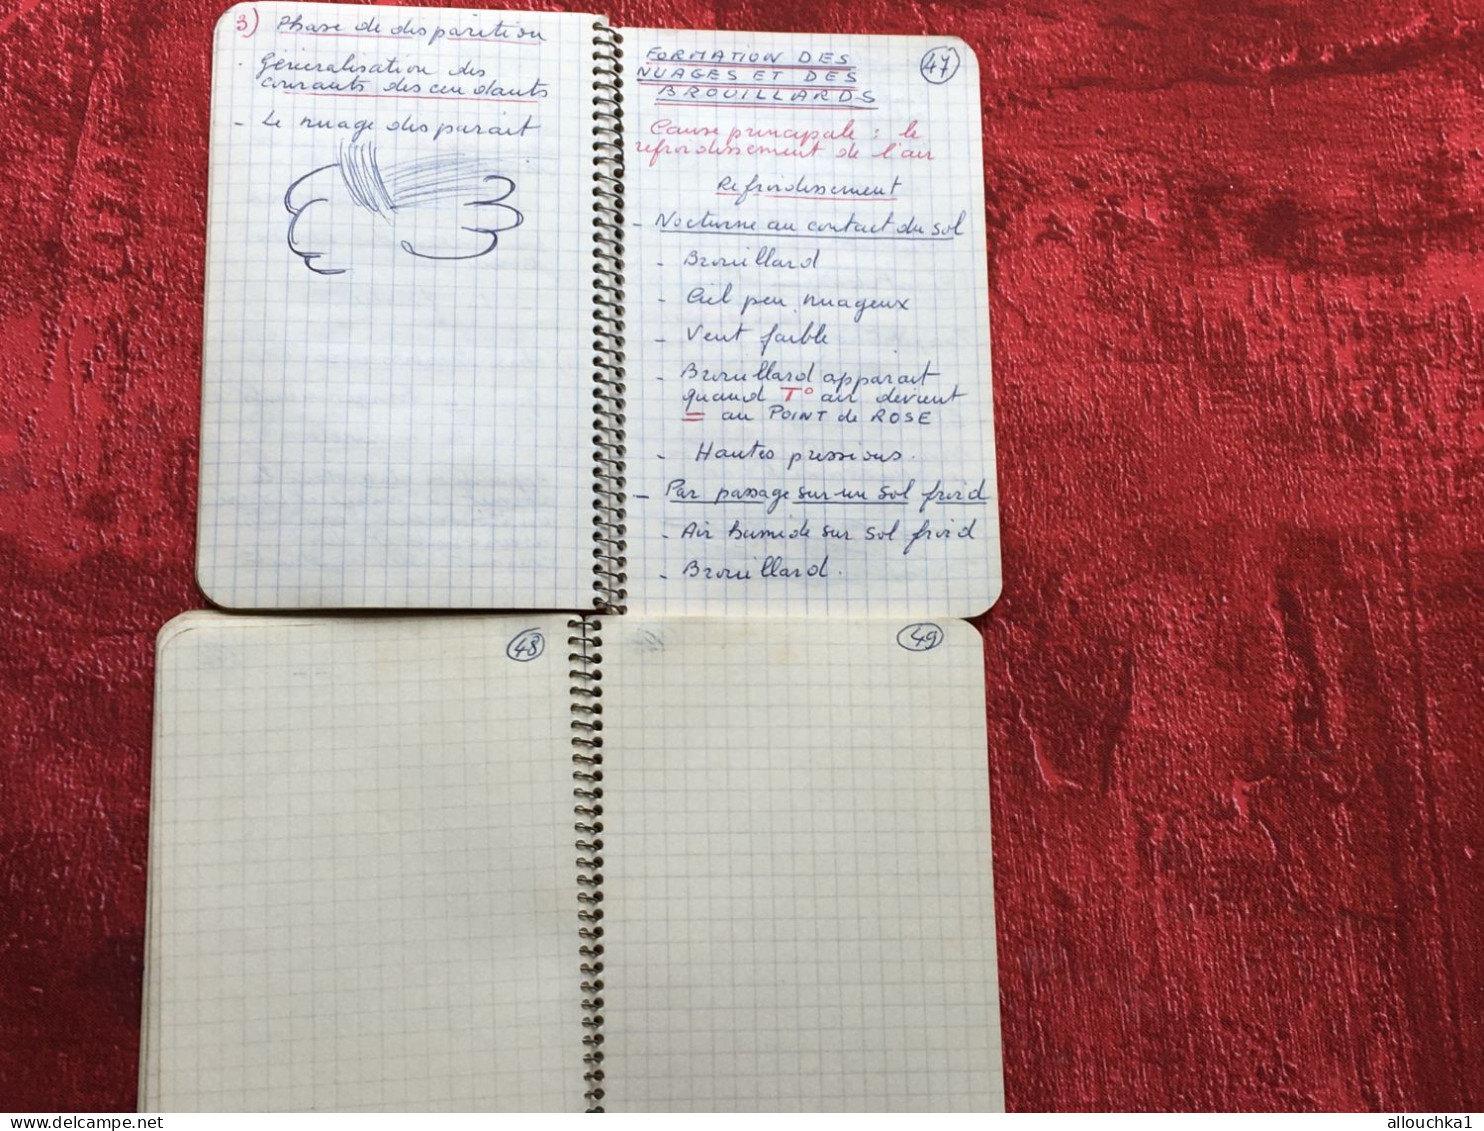 3) Phase de disparition
. Généralisation des
courants descendants
- Le nuage disparait
47
FORMATION DES
NUAGES ET DES
BROUILLARDS
Cause principale : le
refroidissement de l'air
Refroidissement
- Nocturne au contact du sol
- Brouillard
- Ciel peu nuageux
- Vent faible
- Brouillard apparait
quand T° air devient
= au POINT de ROSE
- Hautes pressions.
- Par passage sur un sol froid
- Air humide sur sol froid
- Brouillard.
48
49
allouchka1